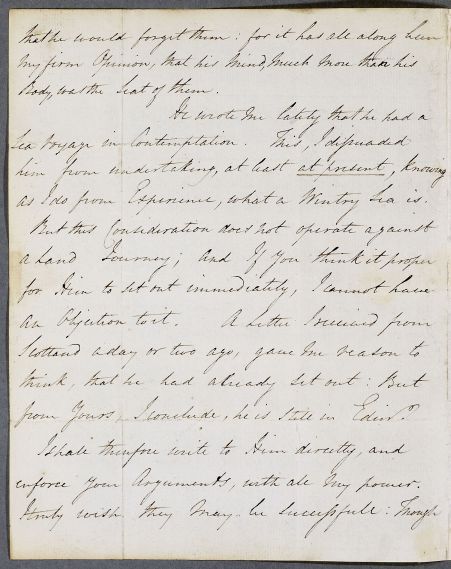 that he would forget them: for it has all along been
my firm Opinion, that his Mind, much more than his
Body, was the Seat of them.
He wrote me lately that he had a
Sea Voyage in Contemplation. This, I disuaded
him from undertaking, at least at present, Knowing
as I do from Experience, what a Wintry Sea is.
But this Consideration does not operate against
a Land Journey; And If You think it proper
for Him to set out immediately, I cannot have
an Objection to it. A Letter I received from
Scotland a day or two ago, gave me reason to
think, that he had already set out: But
from Yours, I conclude, he is still in Edinr.
I shall therefore write to Him directly, and
enforce Your Arguments, with all my power.
I truly wish they may be Successfull: Though